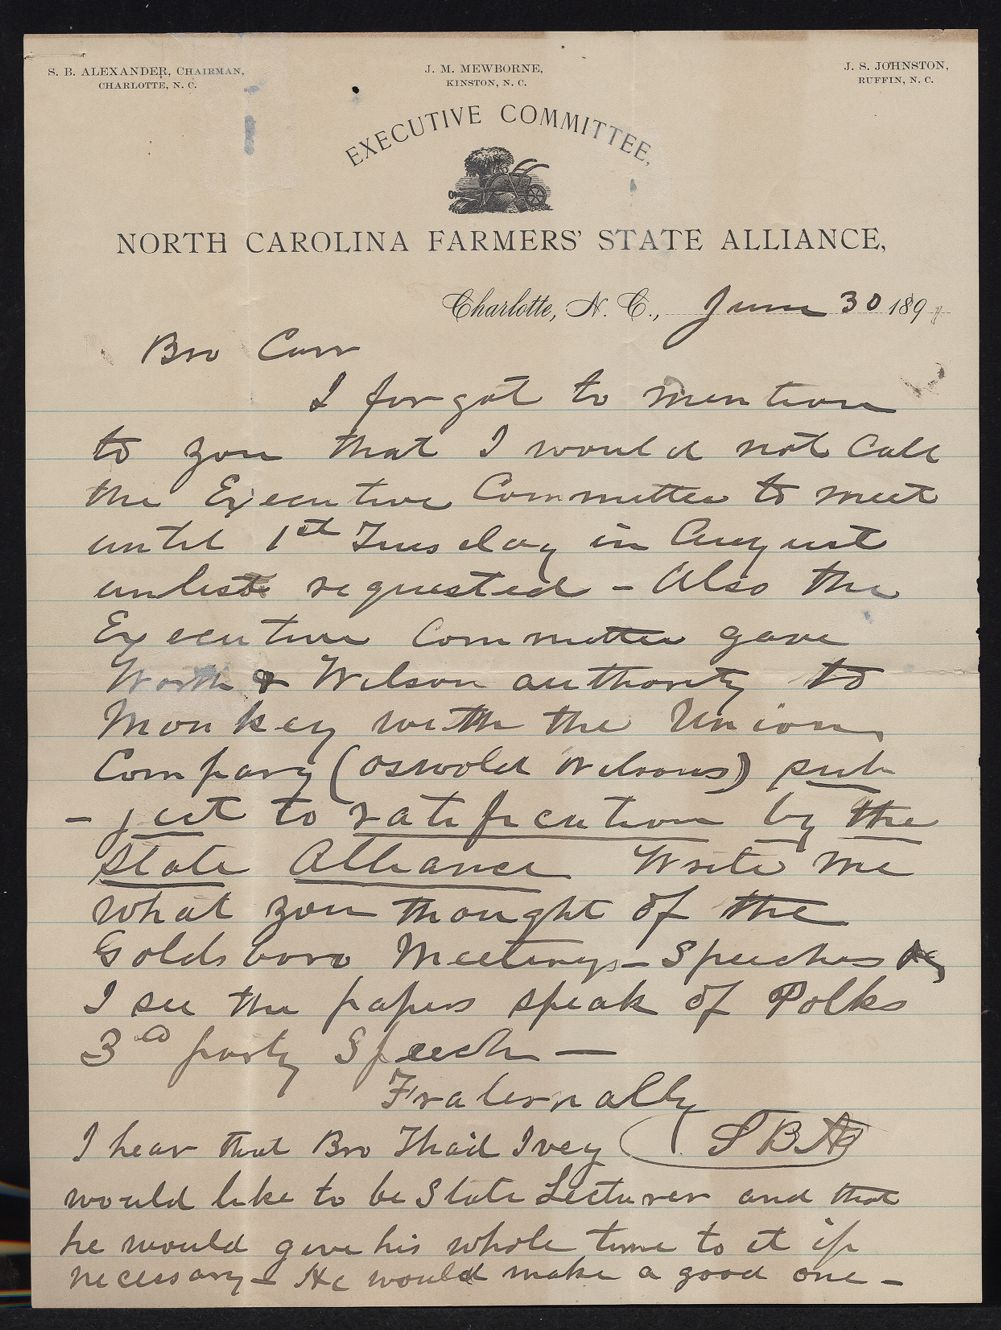 S. B. ALEXANDER, CHAIRMAN,
CHARLOTTE, N. C.
J. M. MEWBORNE,
KINSTON, N. C.
J. S. JOHNSTON,
RUFFIN, N. C.
EXECUTIVE COMMITTEE,
NORTH CAROLINA FARMERS' STATE ALLIANCE,
Charlotte, N. C., June 30 189
Bro Carr
I forgot to mention
to you that I would not call
the Executive Committee to meet
until 1st Tuesday in August
unless requested - Also the
Executive Committee gave
Worth & Wilson authority to
Monkey with the Union
Company (Oswold Wilsons) sub
- ject to ratification by the
State Alliance Write me
what you thought of the
Goldsboro Meetings - Speeches &c,
I see the papers speak of Polks
3rd party Speech —
Fraternally
SBA
I hear that Bro Thad Ivey
would like to be State Lecturer and that
he would give his whole time to it if
necessary - He would make a good one -